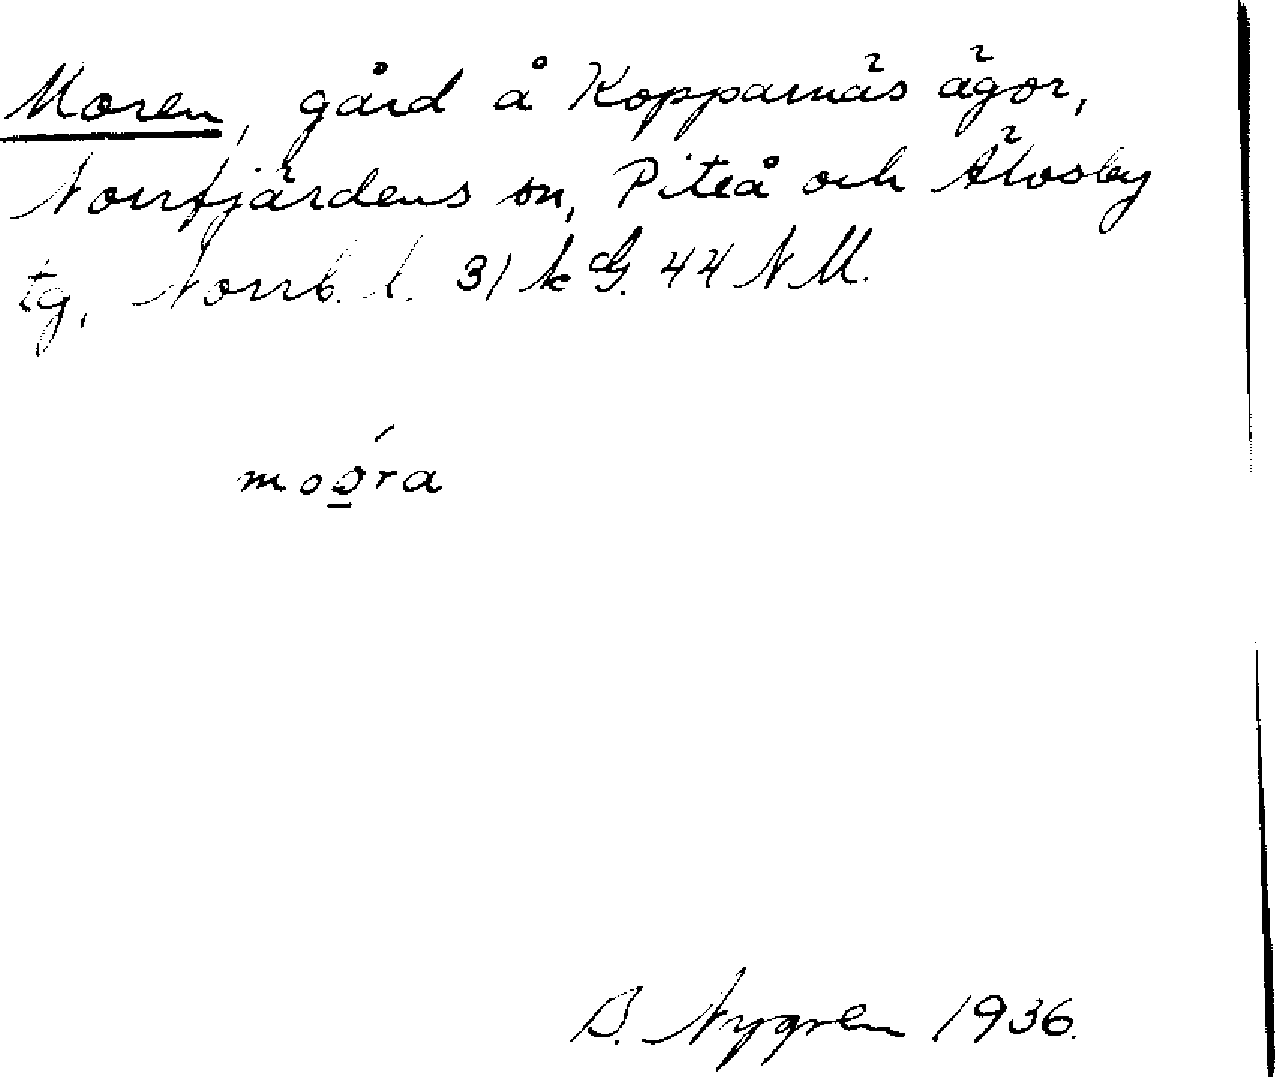 Moren, gård å Kopparnäs ägor,
Norrfjärdens sn, Piteå och Älvsby
tg, Norrb. l. 31 k G. 44 N M.
moo̲´ra
B. Nygren 1936.